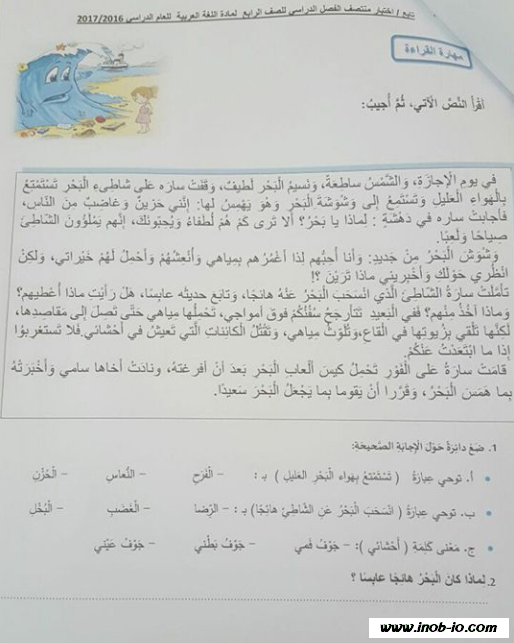 تابع / اختبار منتصف الفصل الدراسي للصف الرابع لمادة اللغة العربية للعام الدراسي 2017/2016
مهارة القراءة
اقرَأ النَّصَّ الآتي، ثُمَّ أُجيبُ:
في يومِ الإجازَةِ، وَالشَّمْسُ ساطعَةٌ، وَنَسيمُ الْبَحْرِ لَطيفٌ، وَقَفَتْ ساره عَلى شاطِىءِ الْبَحْرِ تَسْتَمْتِعُ
بِالْهَواءِ الْعَليلِ وَتَسْتَمِعُ إلى وَشْوَشَةِ الْبَحْرِ وَهْوَ يَهْمِسُ لَها: إنَّني حَزينٌ وَغاضِبٌ مِنَ النّاسِ،
فَأجابَتْ ساره في دَهْشَةٍ : لِماذا يا بَحْرُ؟ ألا تَرى كَمْ هُمْ لُطَفاءُ وَيُحِبّونَكَ، إنَّهم يَمْلَؤُونَ الشّاطِئَ
صِياحًا وَلَعِبًا.
وَشْوَشَ الْبَحْرُ مِنْ جَديدٍ: وَأنا أُحِبُّهم لِذا أغْمُرُهم بِمِياهي وَأُنْعِشُهُمْ وَأحْمِلُ لَهُمْ خَيْراتي، وَلكِنْ
انْظُري حَوْلَكِ وَأخْبِريني ماذا تَرَيْنَ ؟!
تأمَّلَتْ سارَةُ الشّاطِئَ الَّذي انْسَحَبَ الْبَحْرُ عَنْهُ هائِجًا، وَتابَعَ حديثَه عابِسًا، هَلْ رَأيْتِ ماذا أعْطيهم؟
وَماذا آخُذُ مِنْهُم؟ فَفي الْبَعيدِ تَتَأرْجَحُ سُفُنُكُمْ فَوقَ أمواجي، تَحْمِلُها مِياهي حَتّى تَصِلَ إلى مَقاصِدِها،
لكِنَّها تُلْقي بِزُيوتِها في الْقاعِ، وَتُلَوِّثُ مِياهي، وَتَقْتُلُ الْكائِناتِ الَّتي تَعيشُ في أحْشائي. فَلا تَسْتَغْرِبوا
إذا ما ابْتَعَدْتُ عَنْكُمْ.
قامَتْ سارَةُ عَلى الْفَوْرِ تَحْمِلُ كيسَ ألْعابِ الْبَحْرِ بَعدَ أنْ أفرغَتْهُ، وَنادَتْ أخاها سامي وَأخْبَرَتْهُ
بِما هَمَسَ الْبَحْرُ، وَقَرَّرا أنْ يَقوما بِما يَجْعَلُ الْبَحْرَ سَعيدًا.
1. ضَعْ دائِرَةً حَوْلَ الْإجابَةِ الصَّحيحَةِ:
أ. توحي عِبارَةُ ( تَسْتَمْتِعُ بِهَواءِ الْبَحْرِ العَليلِ ) بـ : – الْفَرَحِ – النُّعاسِ – الْحُزْنِ
ب. توحي عِبارَةُ ( انْسَحَبَ الْبَحْرُ عَنِ الشّاطِئِ هائِجًا ) بـ : – الرِّضا – الْغَضَبِ – الْبُخْلِ
ج. مَعْنى كَلِمَةِ ( أحْشائي ): – جَوْفُ فَمي – جَوْفُ بَطْني – جَوْفُ عَيْني
2. لِماذا كانَ الْبَحْرُ هائِجًا عابِسًا ؟
www.inob-io.com